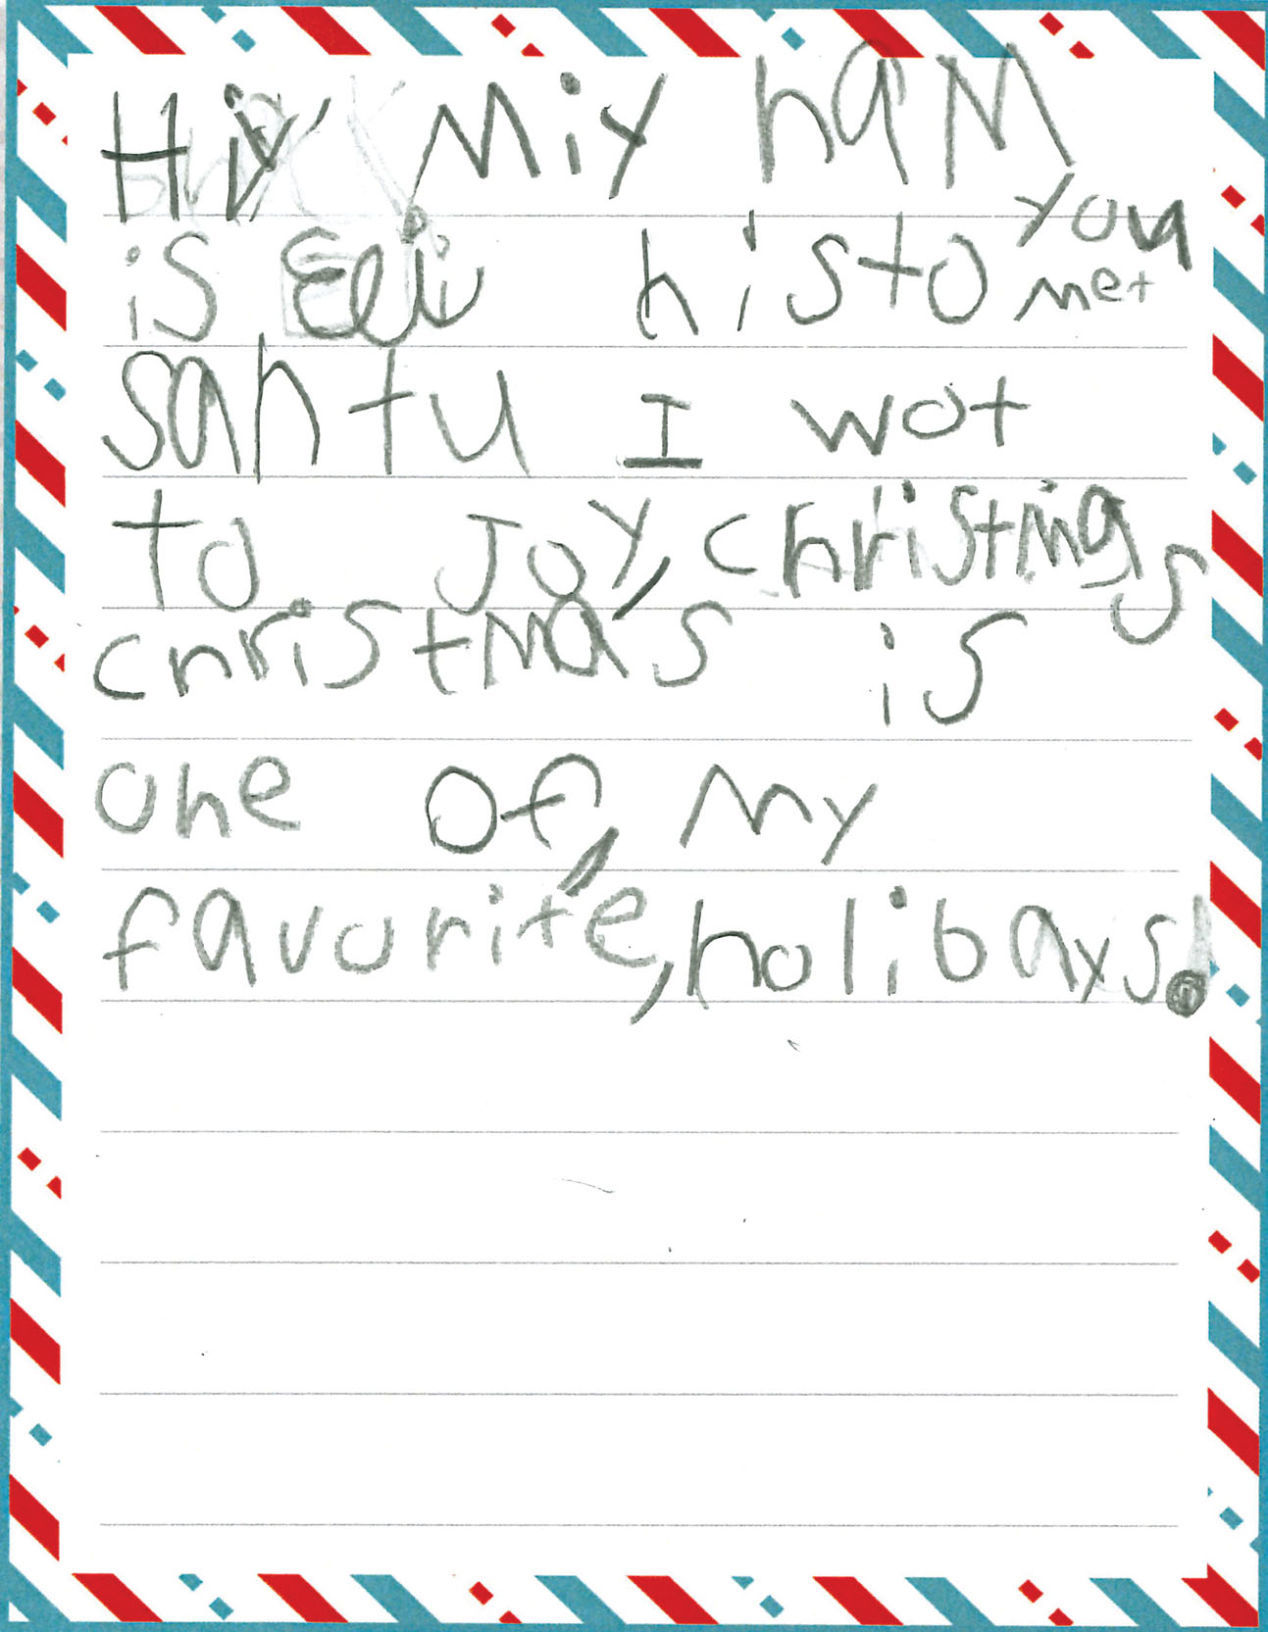 Hiy Miy nam
is Eli nisto you
met
santu I wot
to Joy, christmas
christmas is
one of, my
favorite, holibays.